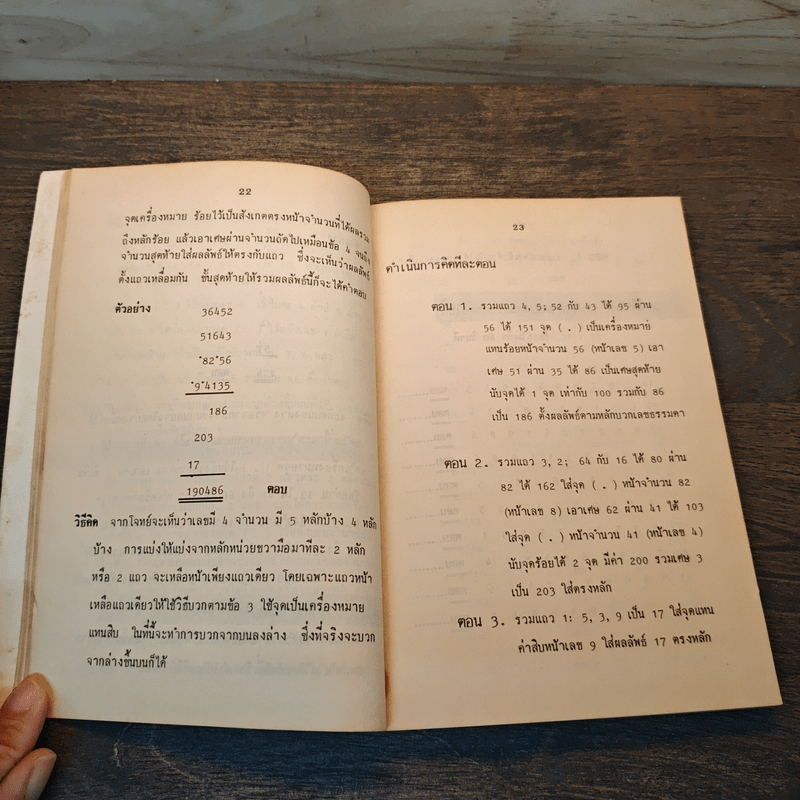 22
จุดเครื่องหมาย ร้อยไว้เป็นสังเกตตรงหน้าจำนวนที่ได้ผลรวม
ถึงหลักร้อย แล้วเอาเศษผ่านจำนวนถัดไปเหมือนข้อ 4 จนถึง
จำนวนสุดท้ายใส่ผลลัพธ์ให้ตรงกับแถว ซึ่งจะเห็นว่าผลลัพธ์
ตั้งแถวเหลื่อมกัน ขั้นสุดท้ายให้รวมผลลัพธ์นี้ก็จะได้คำตอบ
ตัวอย่าง 36452
51643
•82•56
•9•4135
186
203
17
190486 ตอบ
วิธีคิด จากโจทย์จะเห็นว่าเลขมี 4 จำนวน มี 5 หลักบ้าง 4 หลัก
บ้าง การแบ่งให้แบ่งจากหลักหน่วยขวามือมาทีละ 2 หลัก
หรือ 2 แถว จะเหลือหน้าเพียงแถวเดียว โดยเฉพาะแถวหน้า
เหลือแถวเดียวให้ใช้วิธีบวกตามข้อ 3 ใช้จุดเป็นเครื่องหมาย
แทนสิบ ในที่นี้จะทำการบวกจากบนลงล่าง ซึ่งที่จริงจะบวก
จากล่างขึ้นบนก็ได้
23
ดำเนินการคิดทีละตอน
ตอน 1. รวมแถว 4, 5; 52 กับ 43 ได้ 95 ผ่าน
56 ได้ 151 จุด ( . ) เป็นเครื่องหมาย
แทนร้อยหน้าจำนวน 56 (หน้าเลข 5) เอา
เศษ 51 ผ่าน 35 ได้ 86 เป็นเศษสุดท้าย
นับจุดได้ 1 จุด เท่ากับ 100 รวมกับ 86
เป็น 186 ตั้งผลลัพธ์ตามหลักบวกเลขธรรมดา
ตอน 2. รวมแถว 3, 2; 64 กับ 16 ได้ 80 ผ่าน
82 ได้ 162 ใส่จุด ( . ) หน้าจำนวน 82
(หน้าเลข 8) เอาเศษ 62 ผ่าน 41 ได้ 103
ใส่จุด ( . ) หน้าจำนวน 41 (หน้าเลข 4)
นับจุดร้อยได้ 2 จุด มีค่า 200 รวมเศษ 3
เป็น 203 ใส่ตรงหลัก
ตอน 3. รวมแถว 1: 5, 3, 9 เป็น 17 ใส่จุดแทน
ค่าสิบหน้าเลข 9 ใส่ผลลัพธ์ 17 ตรงหลัก